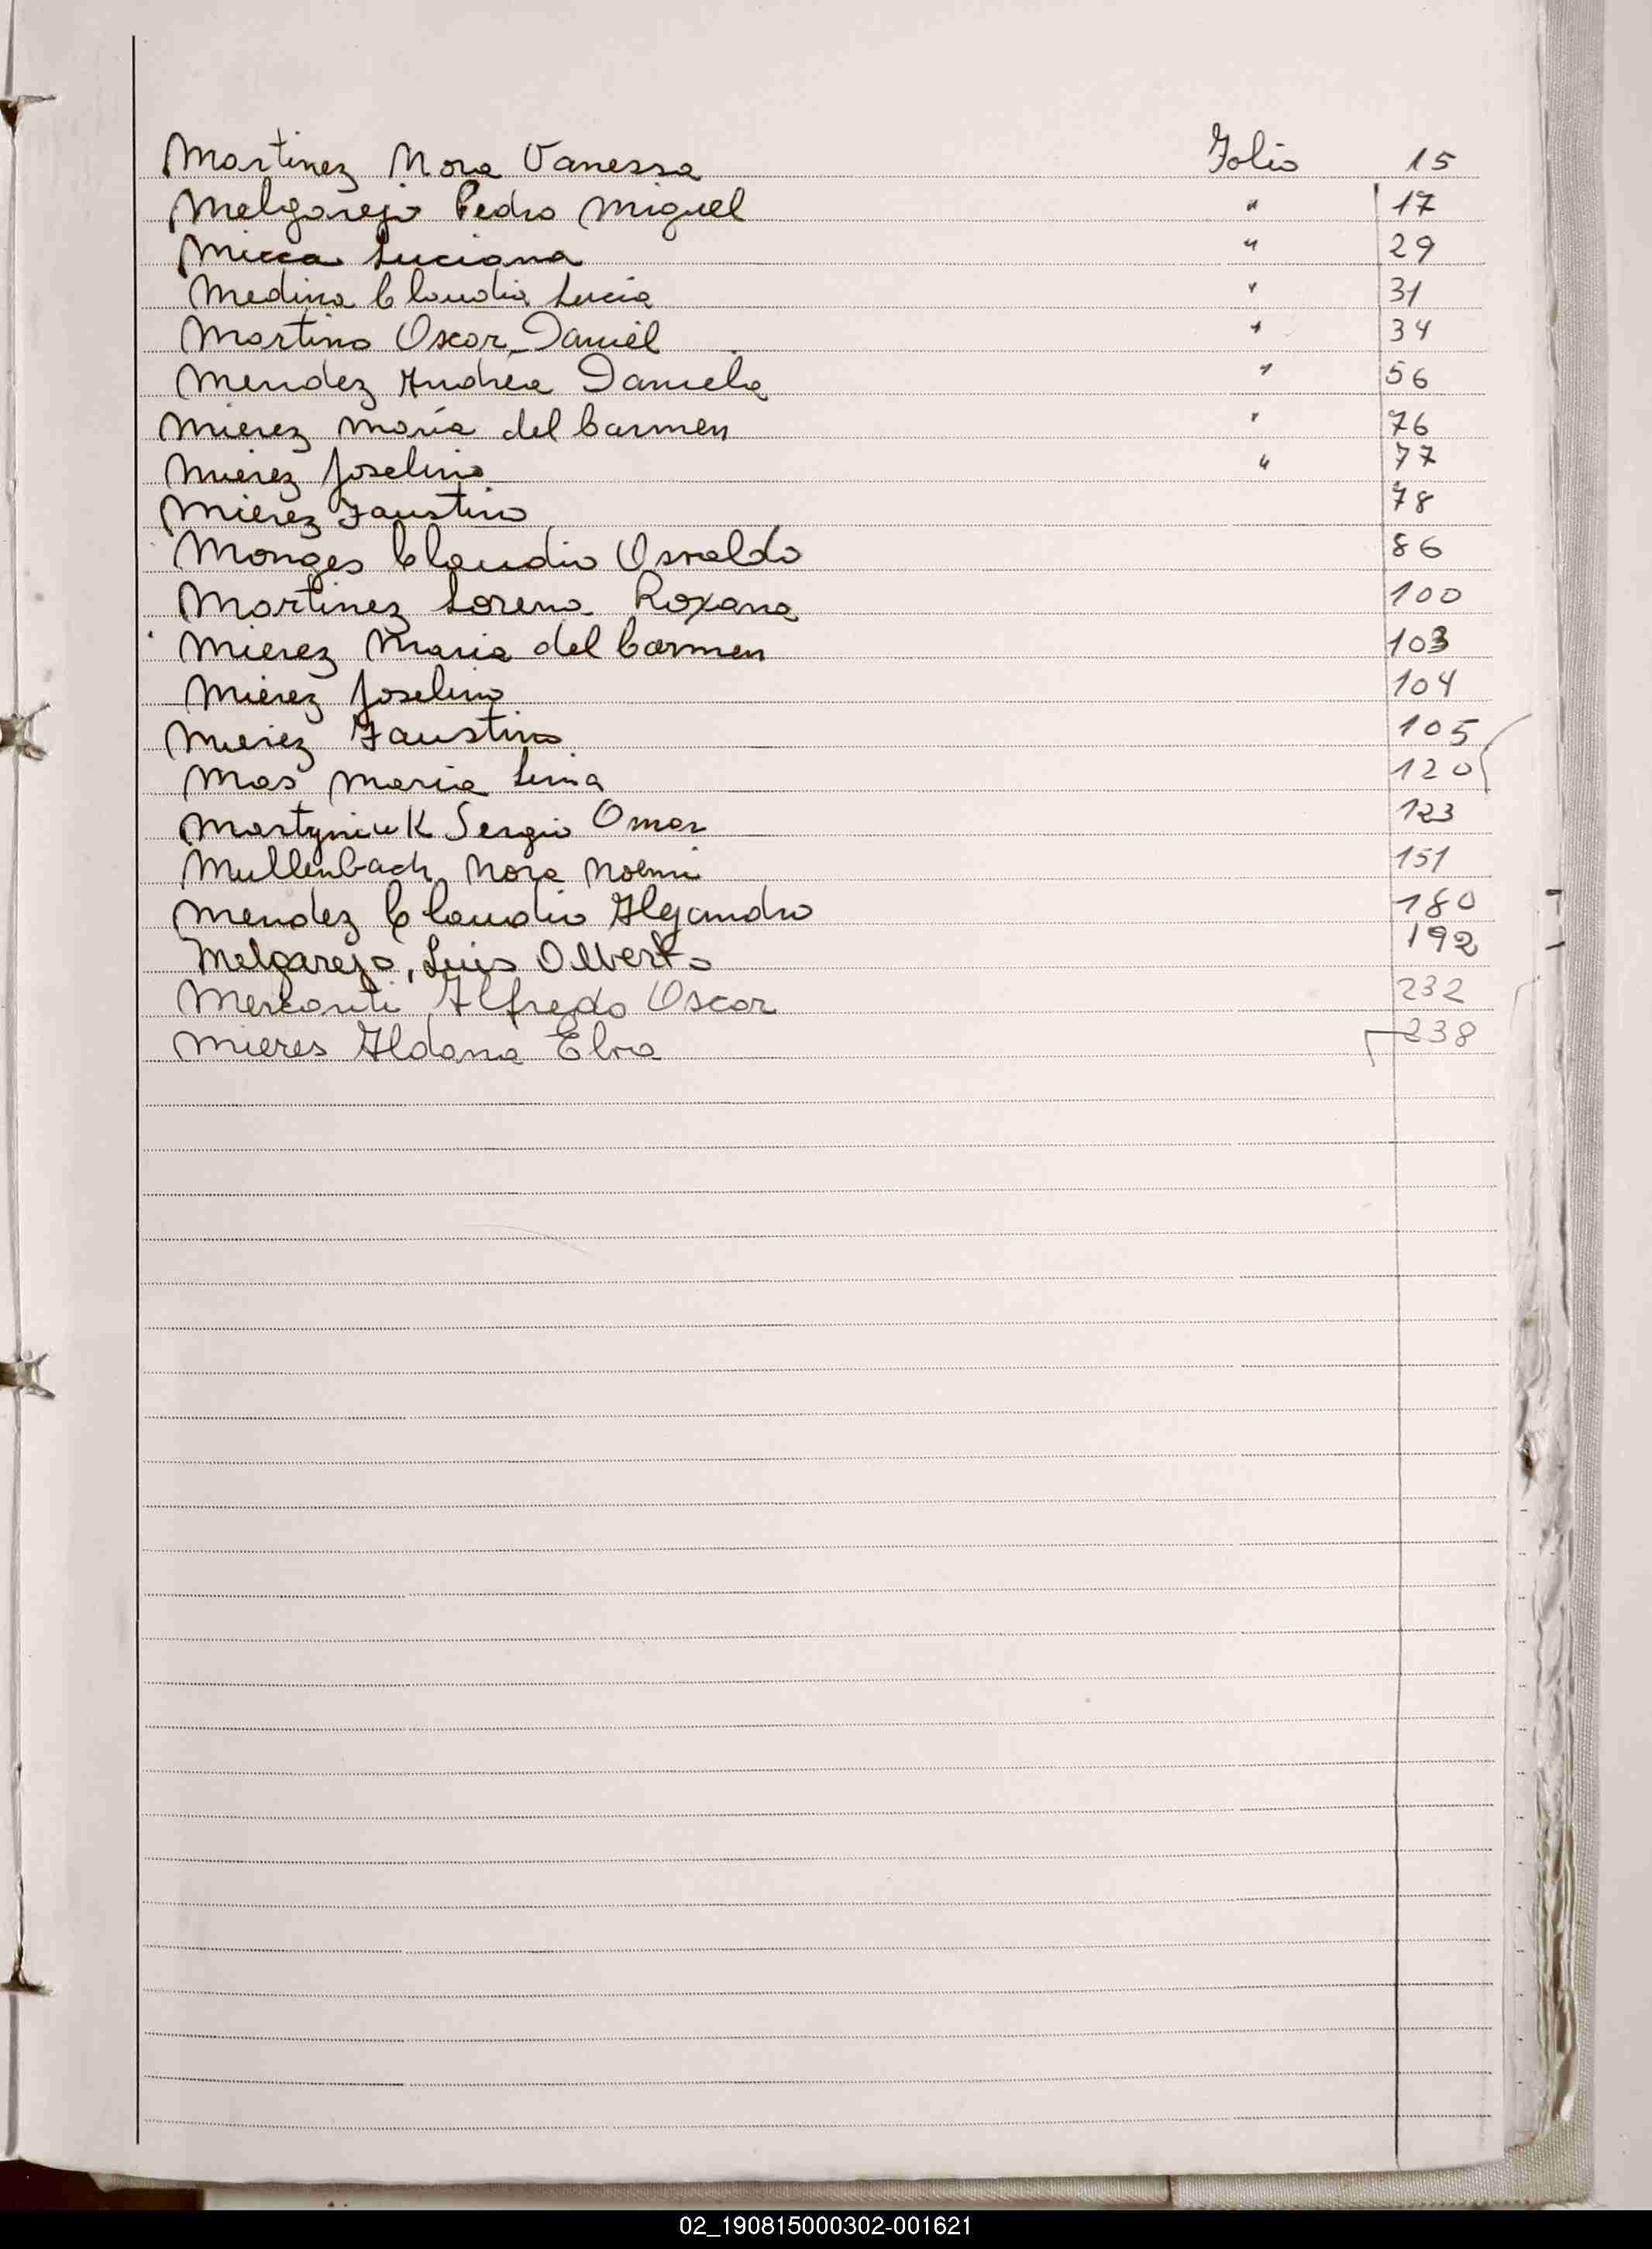 Martinez Nora Vanessa Folio 15
Melgarejo Pedro Miguel " 17
Micca Luciana " 29
Medina Claudia Lucia " 31
Martino Oscar Daniel " 34
Mendez Andrea Daniela " 56
Mierez María del Carmen " 76
Mierez Joselino " 77
Mierez Faustino 78
Monges Claudio Osvaldo 86
Martinez Lorena Roxana 100
Mierez Maria del Carmen 103
Mierez Joselino 104
Mierez Faustino 105
Mas Maria 120
Martyniuk Sergio Omar 123
Mullenbach Nora Noemi 151
Mendez Claudio Alejandro 180
Melgarejo, Luis Alberto 192
Alfredo Oscar 232
Mieres Aldana Elva 238
02_190815000302-001621